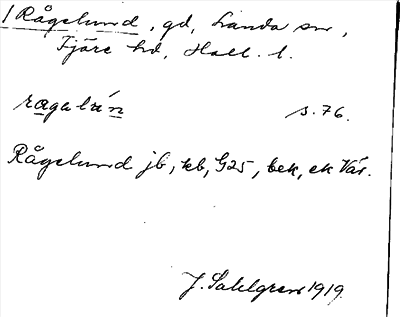 1 Rågelund, gd, Landa sn,
Fjäre hd, Hall. l.
s. 76.
Rågelund jb, kb, G25, bek, ek Vär.
J. Sahlgren 1919.